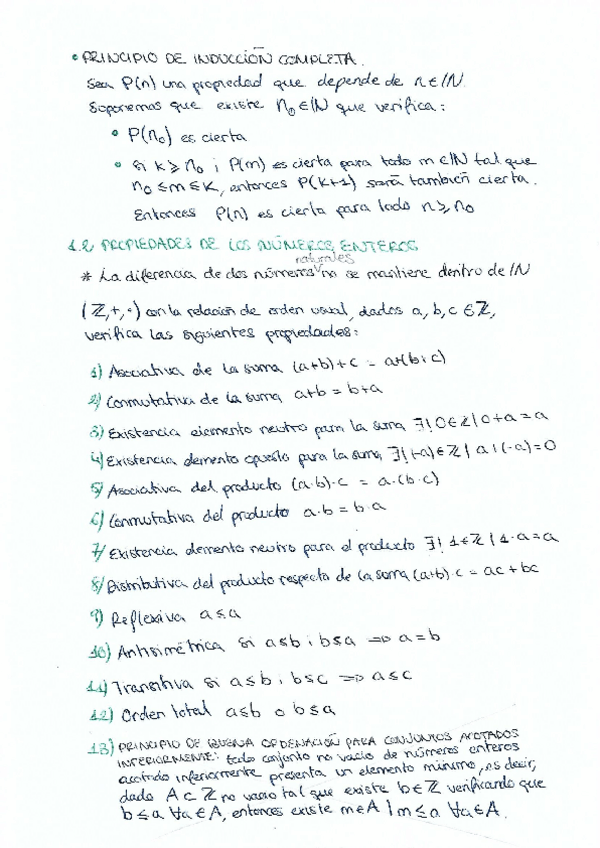 • PRINCIPIO DE INDUCCIÓN COMPLETA.
Sea P(n) una propiedad que depende de n∈ℕ.
Suponemos que existe n₀∈ℕ que verifica:
• P(n₀) es cierta
• Si k ≥ n₀ i P(m) es cierta para todo m∈ℕ tal que
n₀ ≤ m ≤ k, entonces P(k+1) será también cierta.
Entonces P(n) es cierta para todo n ≥ n₀
1.2 PROPIEDADES DE LOS NÚMEROS ENTEROS
naturales
* La diferencia de dos números no se mantiene dentro de ℕ
(ℤ,+,·) con la relación de orden usual, dados a, b, c ∈ ℤ,
verifica las siguientes propiedades:
1) Asociativa de la suma (a+b)+c = a+(b+c)
2) Conmutativa de la suma a+b = b+a
3) Existencia elemento neutro para la suma ∃! 0∈ℤ | 0+a = a
4) Existencia elemento opuesto para la suma ∃! (-a)∈ℤ | a+(-a)=0
5) Asociativa del producto (a·b)·c = a·(b·c)
6) Conmutativa del producto a·b = b·a
7) Existencia elemento neutro para el producto ∃! 1∈ℤ | 1·a = a
8) Distributiva del producto respecto de la suma (a+b)·c = ac + bc
9) Reflexiva a≤a
10) Antisimétrica si a≤b i b≤a ⇒ a=b
11) Transitiva si a≤b i b≤c ⇒ a≤c
12) Orden total a≤b o b≤a
13) PRINCIPIO DE BUENA ORDENACIÓN PARA CONJUNTOS ACOTADOS
INFERIORMENTE: todo conjunto no vacío de números enteros
acotado inferiormente presenta un elemento mínimo, es decir,
dado A⊂ℤ no vacío tal que existe b∈ℤ verificando que
b≤a ∀a∈A, entonces existe m∈A | m≤a ∀a∈A.